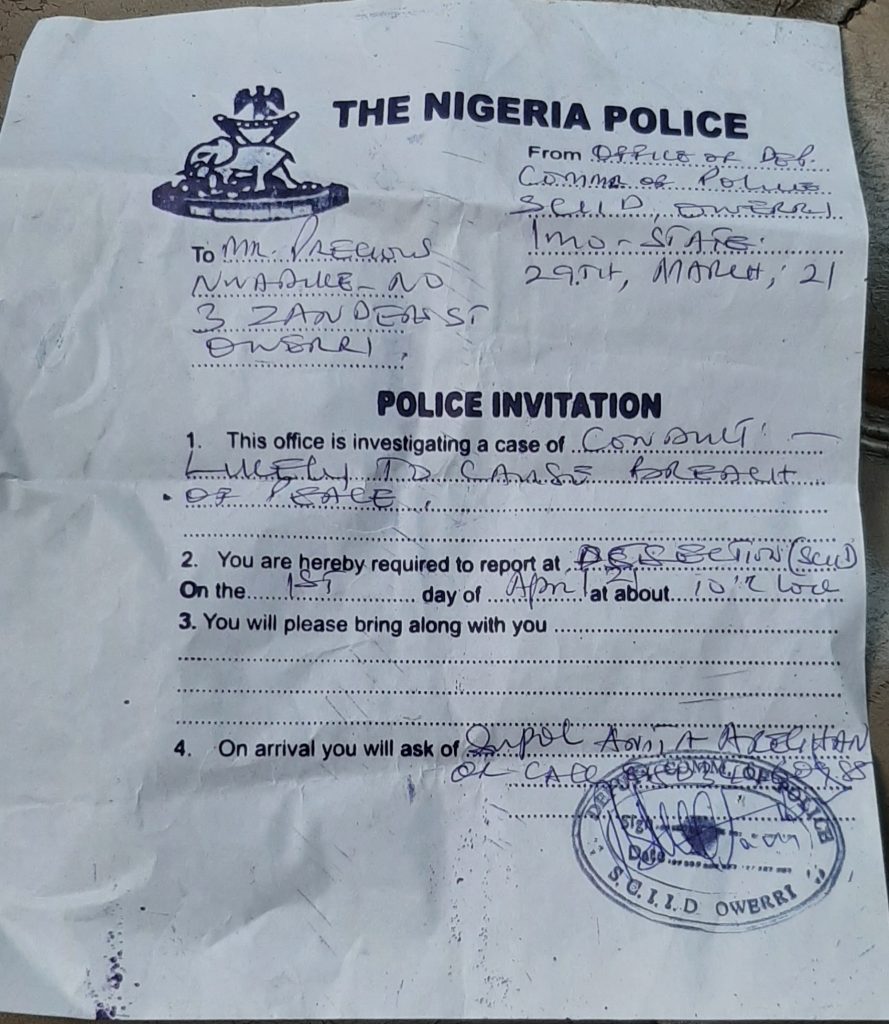 THE NIGERIA POLICE
From OFFICE OF DEP.
COMMR OF POLICE
SCIID, OWERRI
IMO-STATE.
29TH, MARCH, 21
To MR. PRECIOUS
NWADIKE - NO
3 ZANDERS ST
OWERRI.
POLICE INVITATION
1. This office is investigating a case of CONDUCT! -
LIKELY TO CAUSE BREACH
OF PEACE.
2. You are hereby required to report at SECTION (SCIID)
On the 1ST day of April 21 at about 10'
3. You will please bring along with you
4. On arrival you will ask of
OR CALL
DEPUTY COMM. OF POLICE
Sign
Date
S.C.I.I.D OWERRI